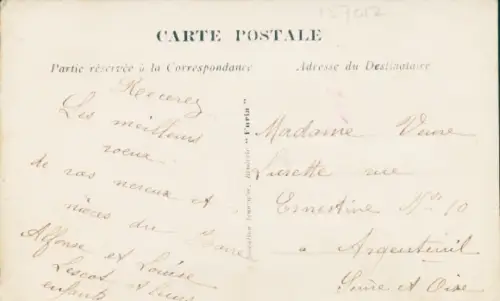 157012
CARTE POSTALE
Partie réservée à la Correspondance
Adresse du Destinataire
Recevez
Les meilleurs
voeux
de vos neveux et
nièces du
Alffonse et Louise
Lescot et leurs
enfants
"Furia"
Madame Veuve
Lusette rue
Ernestine No 10
a Argenteuil
Seine et Oise